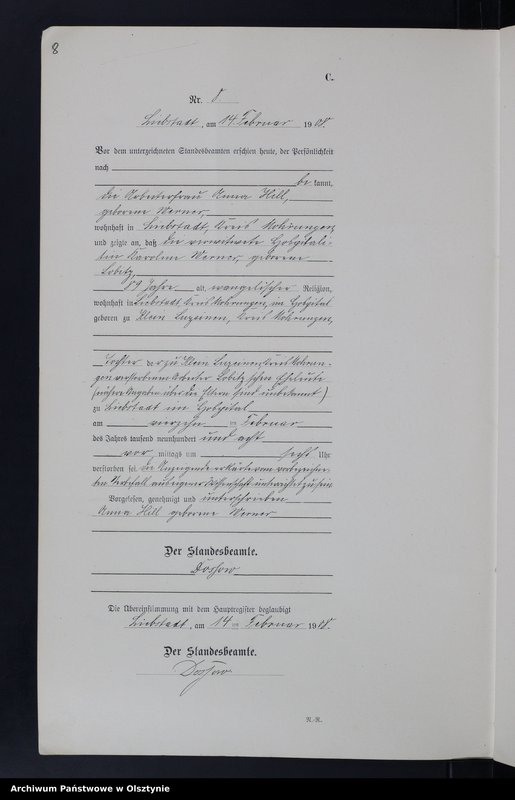 8
C.
Nr. 8.
Liebstadt, am 14. Februar 1908.
Vor dem unterzeichneten Standesbeamten erschien heute, der Persönlichkeit
nach
be kannt,
die Arbeiterfrau Anna Hill,
geborene Werner
wohnhaft in Liebstadt, Kreis Mohrungen,
und zeigte an, daß die verwitwete Hospitali-
tin Karoline Werner, geborene
Lobitz,
89 Jahre alt, evangelischer Religion,
wohnhaft in Liebstadt, Kreis Mohrungen, im Hospital
geboren zu Klein Kreis Mohrungen,
Tochter der zu Klein Kreis Mohrun-
gen verstorbenen Arbeiter Lobitz'schen Eheleute
(nähere Angaben über die Eltern sind unbekannt)
zu Liebstadt im Hospital
am vierzehn ten Februar
des Jahres tausend neunhundert und acht
vor mittags um sechs Uhr
verstorben sei. Die Anzeigende erklärte vom vorbezeichne-
ten Sterbefall aus eigener Wissenschaft unterrichtet zu sein.
Vorgelesen, genehmigt und unterschrieben
Anna Hill geborene Werner
Der Standesbeamte.
Dossow
Die Übereinstimmung mit dem Hauptregister beglaubigt
Liebstadt, am 14 ten Februar 1908.
Der Standesbeamte.
Dossow
N.-R.
Archiwum Państwowe w Olsztynie